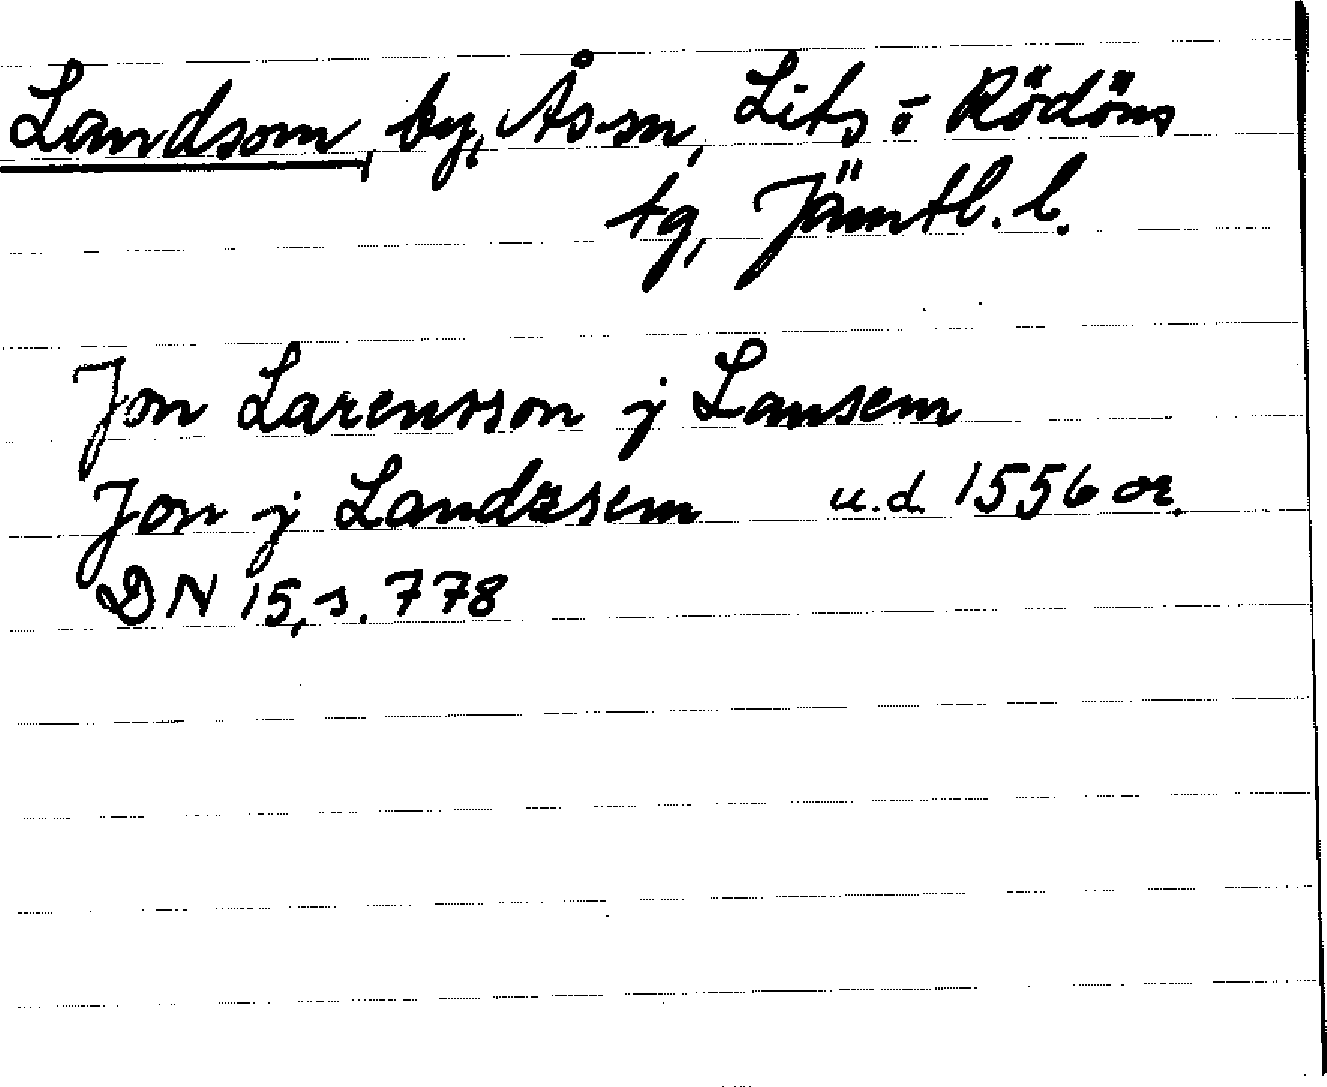 Landsom, by, Ås sn, Lits o Rödöns
tg, Jämtl. l.
Jon Larensson j Lansem
Jon j Landzsem u.d. 1556 or.
DN 15, s. 778